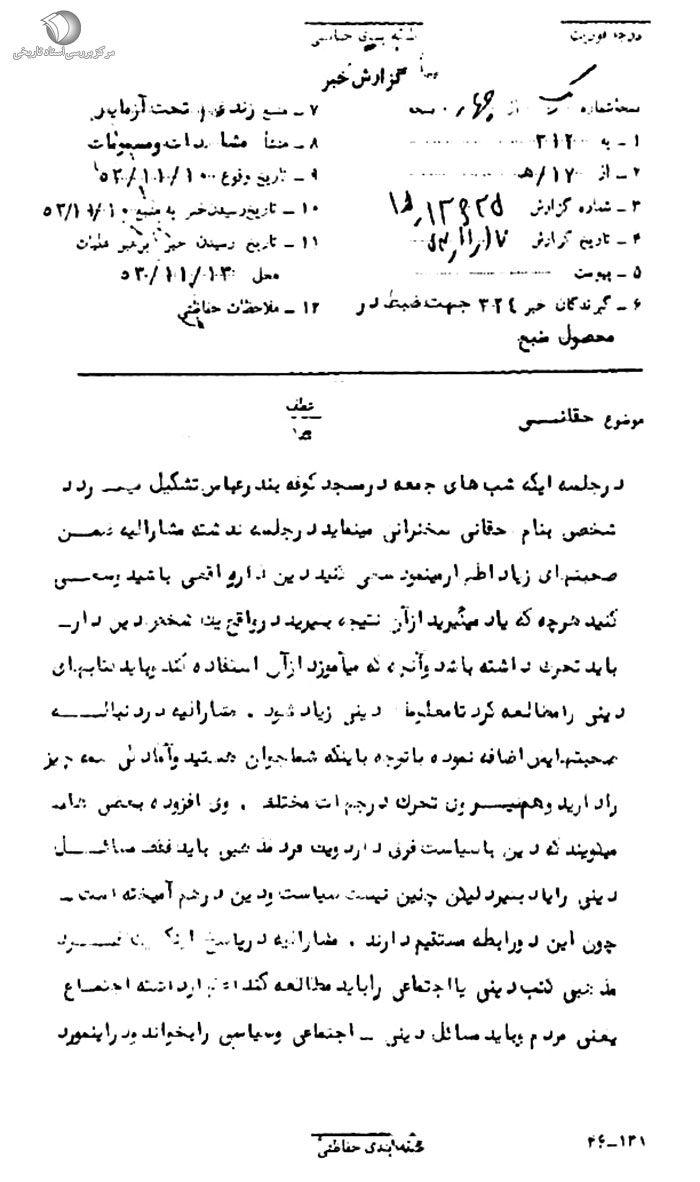 مرکز بررسی اسناد تاریخی
درجه فوریت
طبقه بندی حفاظتی
گزارش خبر
نسخه شماره از چهار نسخه
۱ ـ به ۳۱۲
۲ ـ از ۱۷/ هـ
۳ ـ شماره گزارش
۴ ـ تاریخ گزارش
۵ ـ پیوست
۶ ـ گیرندگان خبر ۳۲۴ جهت ضبط در
محصول منبع
۷ ـ منبع تحت آزمایش
۸ ـ منشأ مشاهدات و مسموعات
۹ ـ تاریخ وقوع ۵۳/۱۱/۱۰
۱۰ ـ تاریخ رسیدن خبر به منبع ۵۳/۱۱/۱۰
۱۱ ـ تاریخ رسیدن خبر برهبر عملیات
محل ۵۳/۱۱/۱۳
۱۲ ـ ملاحظات حفاظتی
موضوع حقانی
عطف
درجلسه ایکه شب های جمعه درمسجد کوفه بندرعباس تشکیل میگردد
شخصی بنام حقانی سخنرانی مینماید درجلسه گذشته مشارالیه ضمن
صحبتهای زیاد اظهارمینمود سعی کنید دین دارواقعی باشید وسعی
کنید هرچه که یاد میگیرید ازآن نتیجه بگیرید درواقع یک شخص دین دار ـ
باید تحرک داشته باشد وآنچه که میآموزد ازآن استفاده کند وباید کتابهای
دینی رامطالعه کرد تامعلومات دینی زیاد شود . مشارالیه دردنباله
صحبتهایش اضافه نموده باتوجه باینکه شماجوان هستید وآمادگی همه چیز
رادارید وهم تحرک درجهات مختلف . وی افزوده بعضی ها
میگویند که دین باسیاست فرق دارد ویک فرد مذهبی باید فقط مسائل
دینی رایاد بگیرد لیکن چنین نیست سیاست ودین درهم آمیخته است ـ
چون این دورابطه مستقیم دارند . مشارالیه درپاسخ اینکه یک فرد
مذهبی کتب دینی یااجتماعی راباید مطالعه کند اظهارداشته اجتماع
یعنی مردم وباید مسائل دینی ـ اجتماعی وسیاسی رابخواند ودراینمورد
طبقه بندی حفاظتی
۱۲۱ـ۴۶